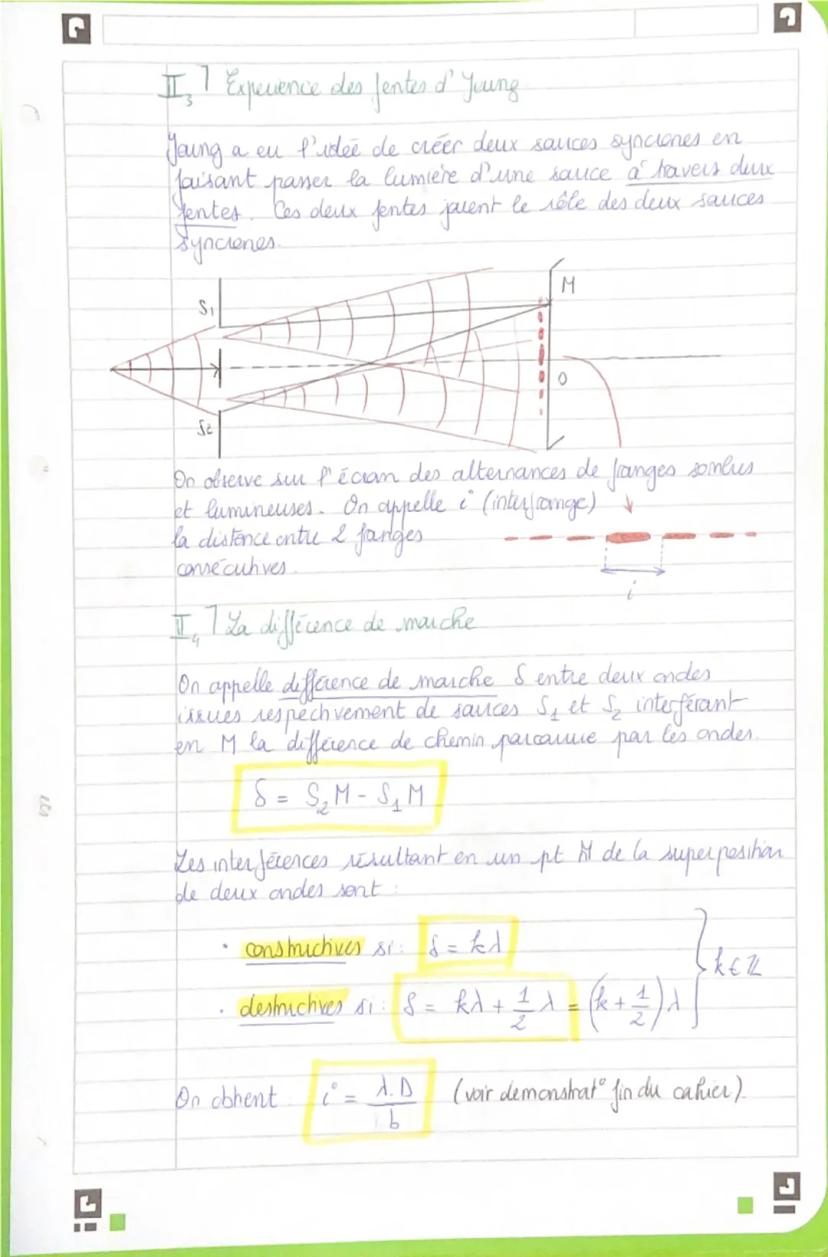 II₃⌉ Expérience des fentes d'Young
Young a eu l'idée de créer deux sources syncrones en
faisant passer la lumière d'une source à travers deux
fentes. Ces deux fentes jouent le rôle des deux sources
syncrones.
S₁
M
O
S₂
On observe sur l'écran des alternances de franges sombres
et lumineuses. On appelle i (interfrange)
la distance entre 2 franges
consécutives.
i
II₄⌉ La différence de marche
On appelle différence de marche δ entre deux ondes
issues respectivement de sources S₁ et S₂ interférant
en M la différence de chemin parcourue par les ondes.
δ = S₂M - S₁M
Les interférences résultant en un pt M de la superposition
de deux ondes sont :
• constructives si : δ = kλ
• destructives si : δ = kλ + 1/2 λ = (k + 1/2) λ
k ∈ ℤ
On obtient : i = λ.D/b (voir démonstrat° fin du cahier).